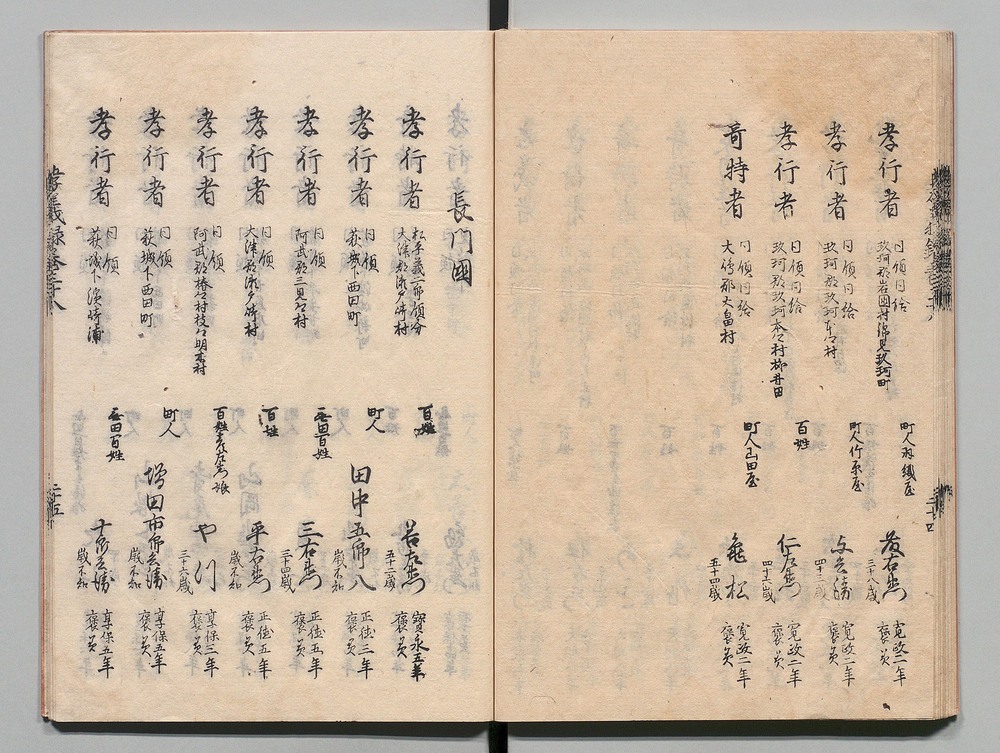 孝行者 同領同給 玖珂郡岩国村錦見玖珂町 町人 三十八歳 寛政二年 褒美
孝行者 同領同給 玖珂郡玖珂本郷村 町人竹原屋 四十三歳 寛政二年 褒美
孝行者 同領同給 玖珂郡玖珂本郷村柳井田 百姓 仁左衛門 四十六歳 寛政二年 褒美
奇特者 同領同給 大島郡大畠村 町人山田屋 亀松 五十四歳 寛政二年 褒美
長門國
孝行者 松平義二郎領分 大津郡瀬戸崎村 百姓 五十二歳 寶永五年 褒美
孝行者 同領 萩城下西田町 町人 田中五郎八 歳不知 正徳三年 褒美
孝行者 同領 阿武郡三見村 無田百姓 三右衛門 三十四歳 正徳五年 褒美
孝行者 同領 大津郡瀬戸崎村 百姓 平右衛門 歳不知 正徳五年 褒美
孝行者 同領 阿武郡椿郷村枝郷明木村 百姓 娘 や 三十六歳 享保三年 褒美
孝行者 同領 萩城下西田町 町人 増田市郎兵衛 歳不知 享保五年 褒美
孝行者 同領 萩城下濱崎浦 無田百姓 十郎兵衛 歳不知 享保五年 褒美